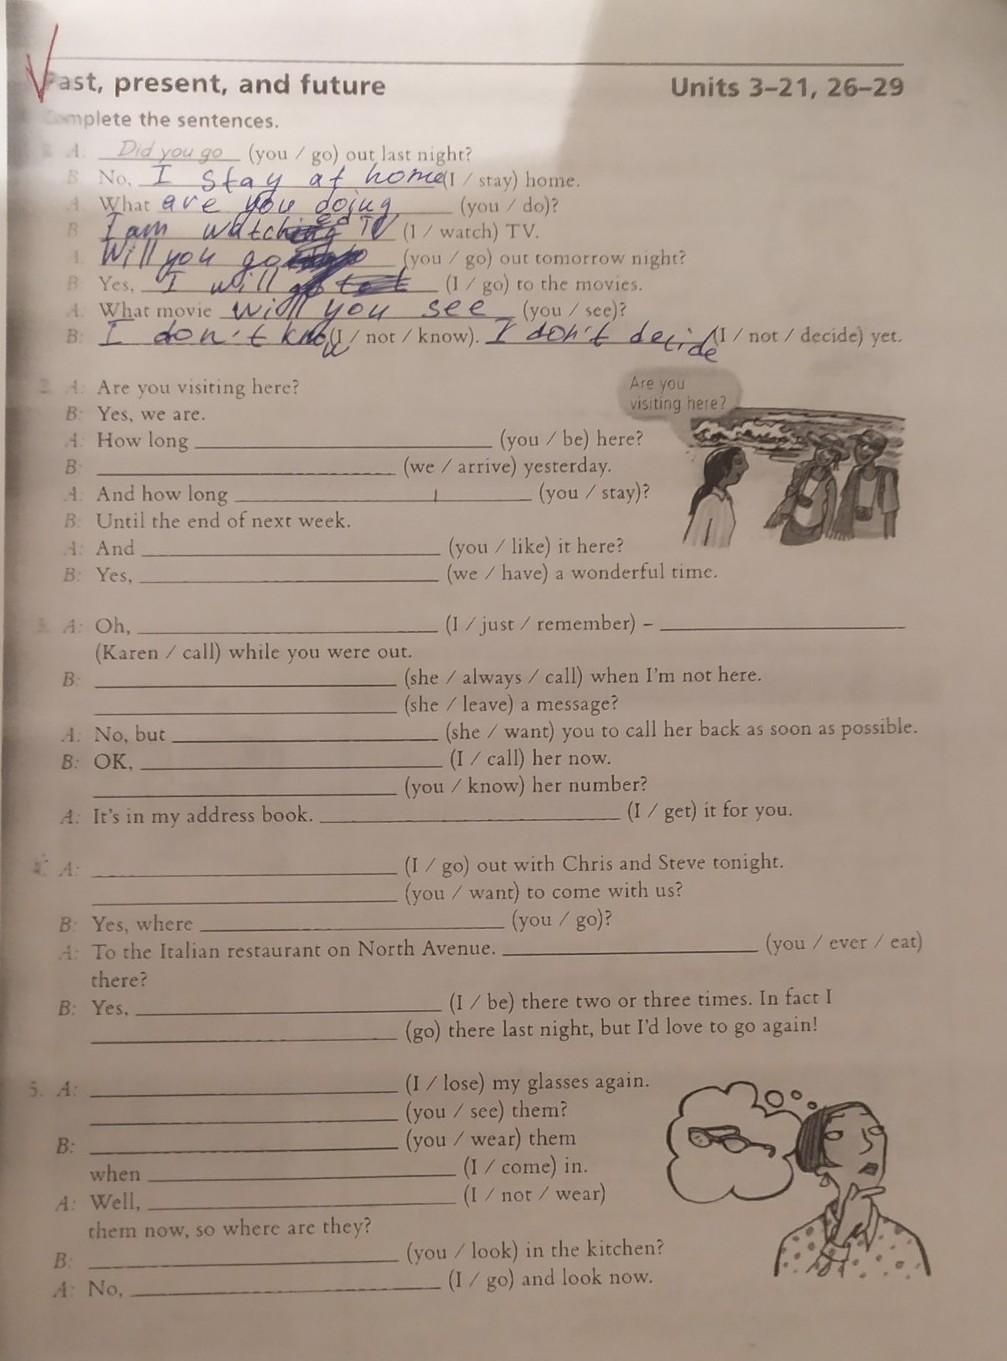 Past, present, and future Units 3–21, 26–29
Complete the sentences.
A: Did you go (you / go) out last night?
B: No, I stay at home (I / stay) home.
A: What are you doing (you / do)?
B: I am watching TV (I / watch) TV.
A: Will you go (you / go) out tomorrow night?
B: Yes, I will (I / go) to the movies.
A: What movie will you see (you / see)?
B: I don't know (I / not / know). I don't decide (I / not / decide) yet.
2. A: Are you visiting here?
Are you
visiting here?
B: Yes, we are.
A: How long (you / be) here?
B: (we / arrive) yesterday.
A: And how long (you / stay)?
B: Until the end of next week.
A: And (you / like) it here?
B: Yes, (we / have) a wonderful time.
3. A: Oh, (I / just / remember) –
(Karen / call) while you were out.
B: (she / always / call) when I'm not here.
(she / leave) a message?
A: No, but (she / want) you to call her back as soon as possible.
B: OK, (I / call) her now.
(you / know) her number?
A: It's in my address book. (I / get) it for you.
4. A: (I / go) out with Chris and Steve tonight.
(you / want) to come with us?
B: Yes, where (you / go)?
A: To the Italian restaurant on North Avenue. (you / ever / eat)
there?
B: Yes, (I / be) there two or three times. In fact I
(go) there last night, but I'd love to go again!
5. A: (I / lose) my glasses again.
(you / see) them?
B: (you / wear) them
when (I / come) in.
A: Well, (I / not / wear)
them now, so where are they?
B: (you / look) in the kitchen?
A: No, (I / go) and look now.